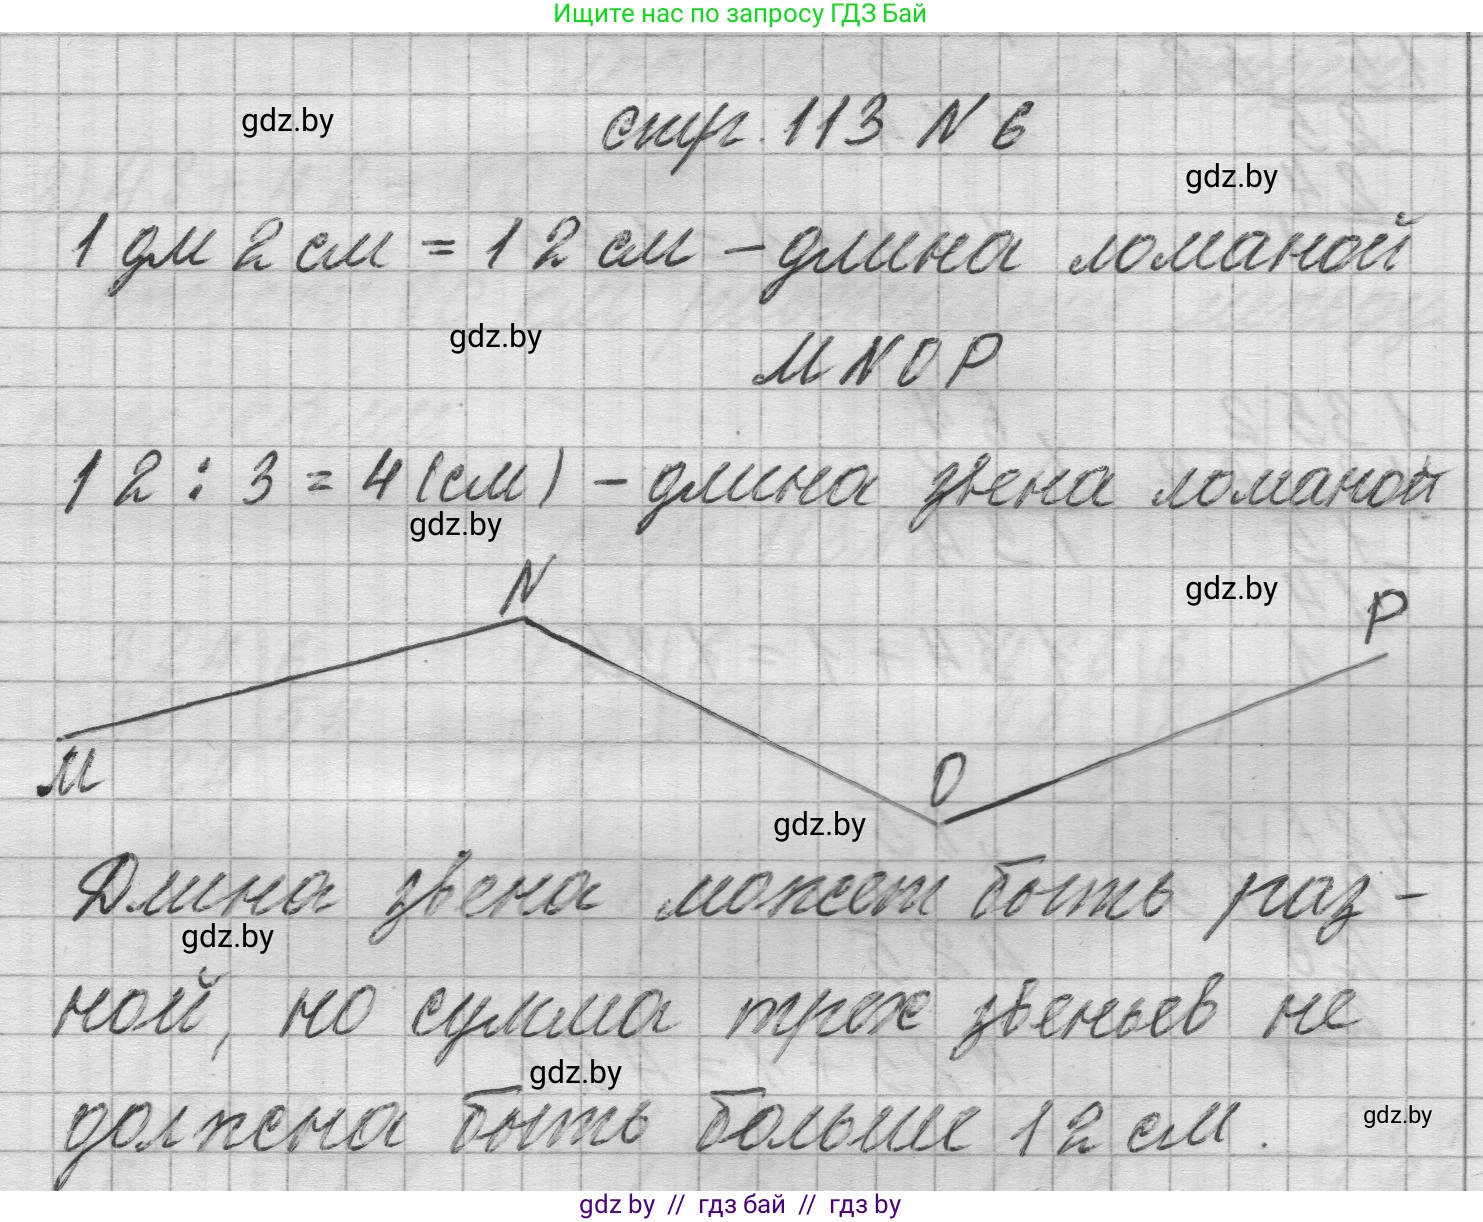 Ищите нас по запросу ГДЗ Бай
gdz.by
стр. 113 N 6
gdz.by
1 дм 2 см = 12 см – длина ломаной
gdz.by
MNOP
12 : 3 = 4 (см) – длина звена ломаной
gdz.by
N
gdz.by
P
M
O
gdz.by
Длина звена может быть раз-
gdz.by
ной, но сумма трех звеньев не
gdz.by
должна быть больше 12 см.
gdz.by
gdz by // гдз бай // гдз by